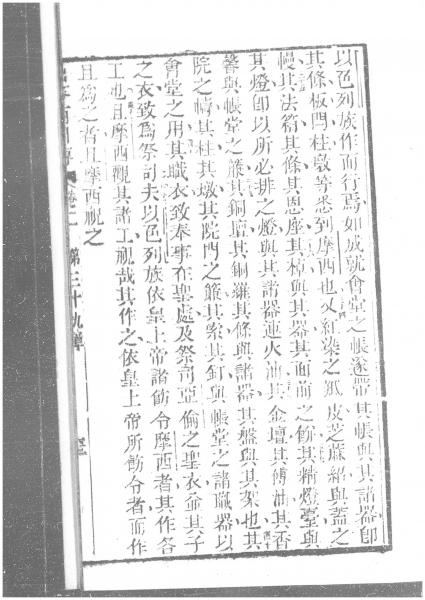 以色列族作而行焉如成就會堂之帳遂帶其帳與其諸器即
其條板門柱墩等悉到摩西也又紅染之羝皮芝蔴紹與蓋之
幔其法箱其條其恩座其棹與其器其面前之餅其精燈臺與
其燈即以所必排之燈與其諸器連火油其金壇其傅油其香
馨與帳堂之簾其銅壇其銅羅其條與諸器其盤與其架也其
院之幬其柱其墩其院門之簾其索其釘與帳堂之諸職器以
會堂之用其職衣致奉事在聖處及祭司亞倫之聖衣並其子
之衣致爲祭司夫以色列族依皇上帝諸飭令摩西者其作各
工也且摩西觀其諸工視哉其作之依皇上帝所飭令者而作
且爲之者且摩西祝之
第三十九章